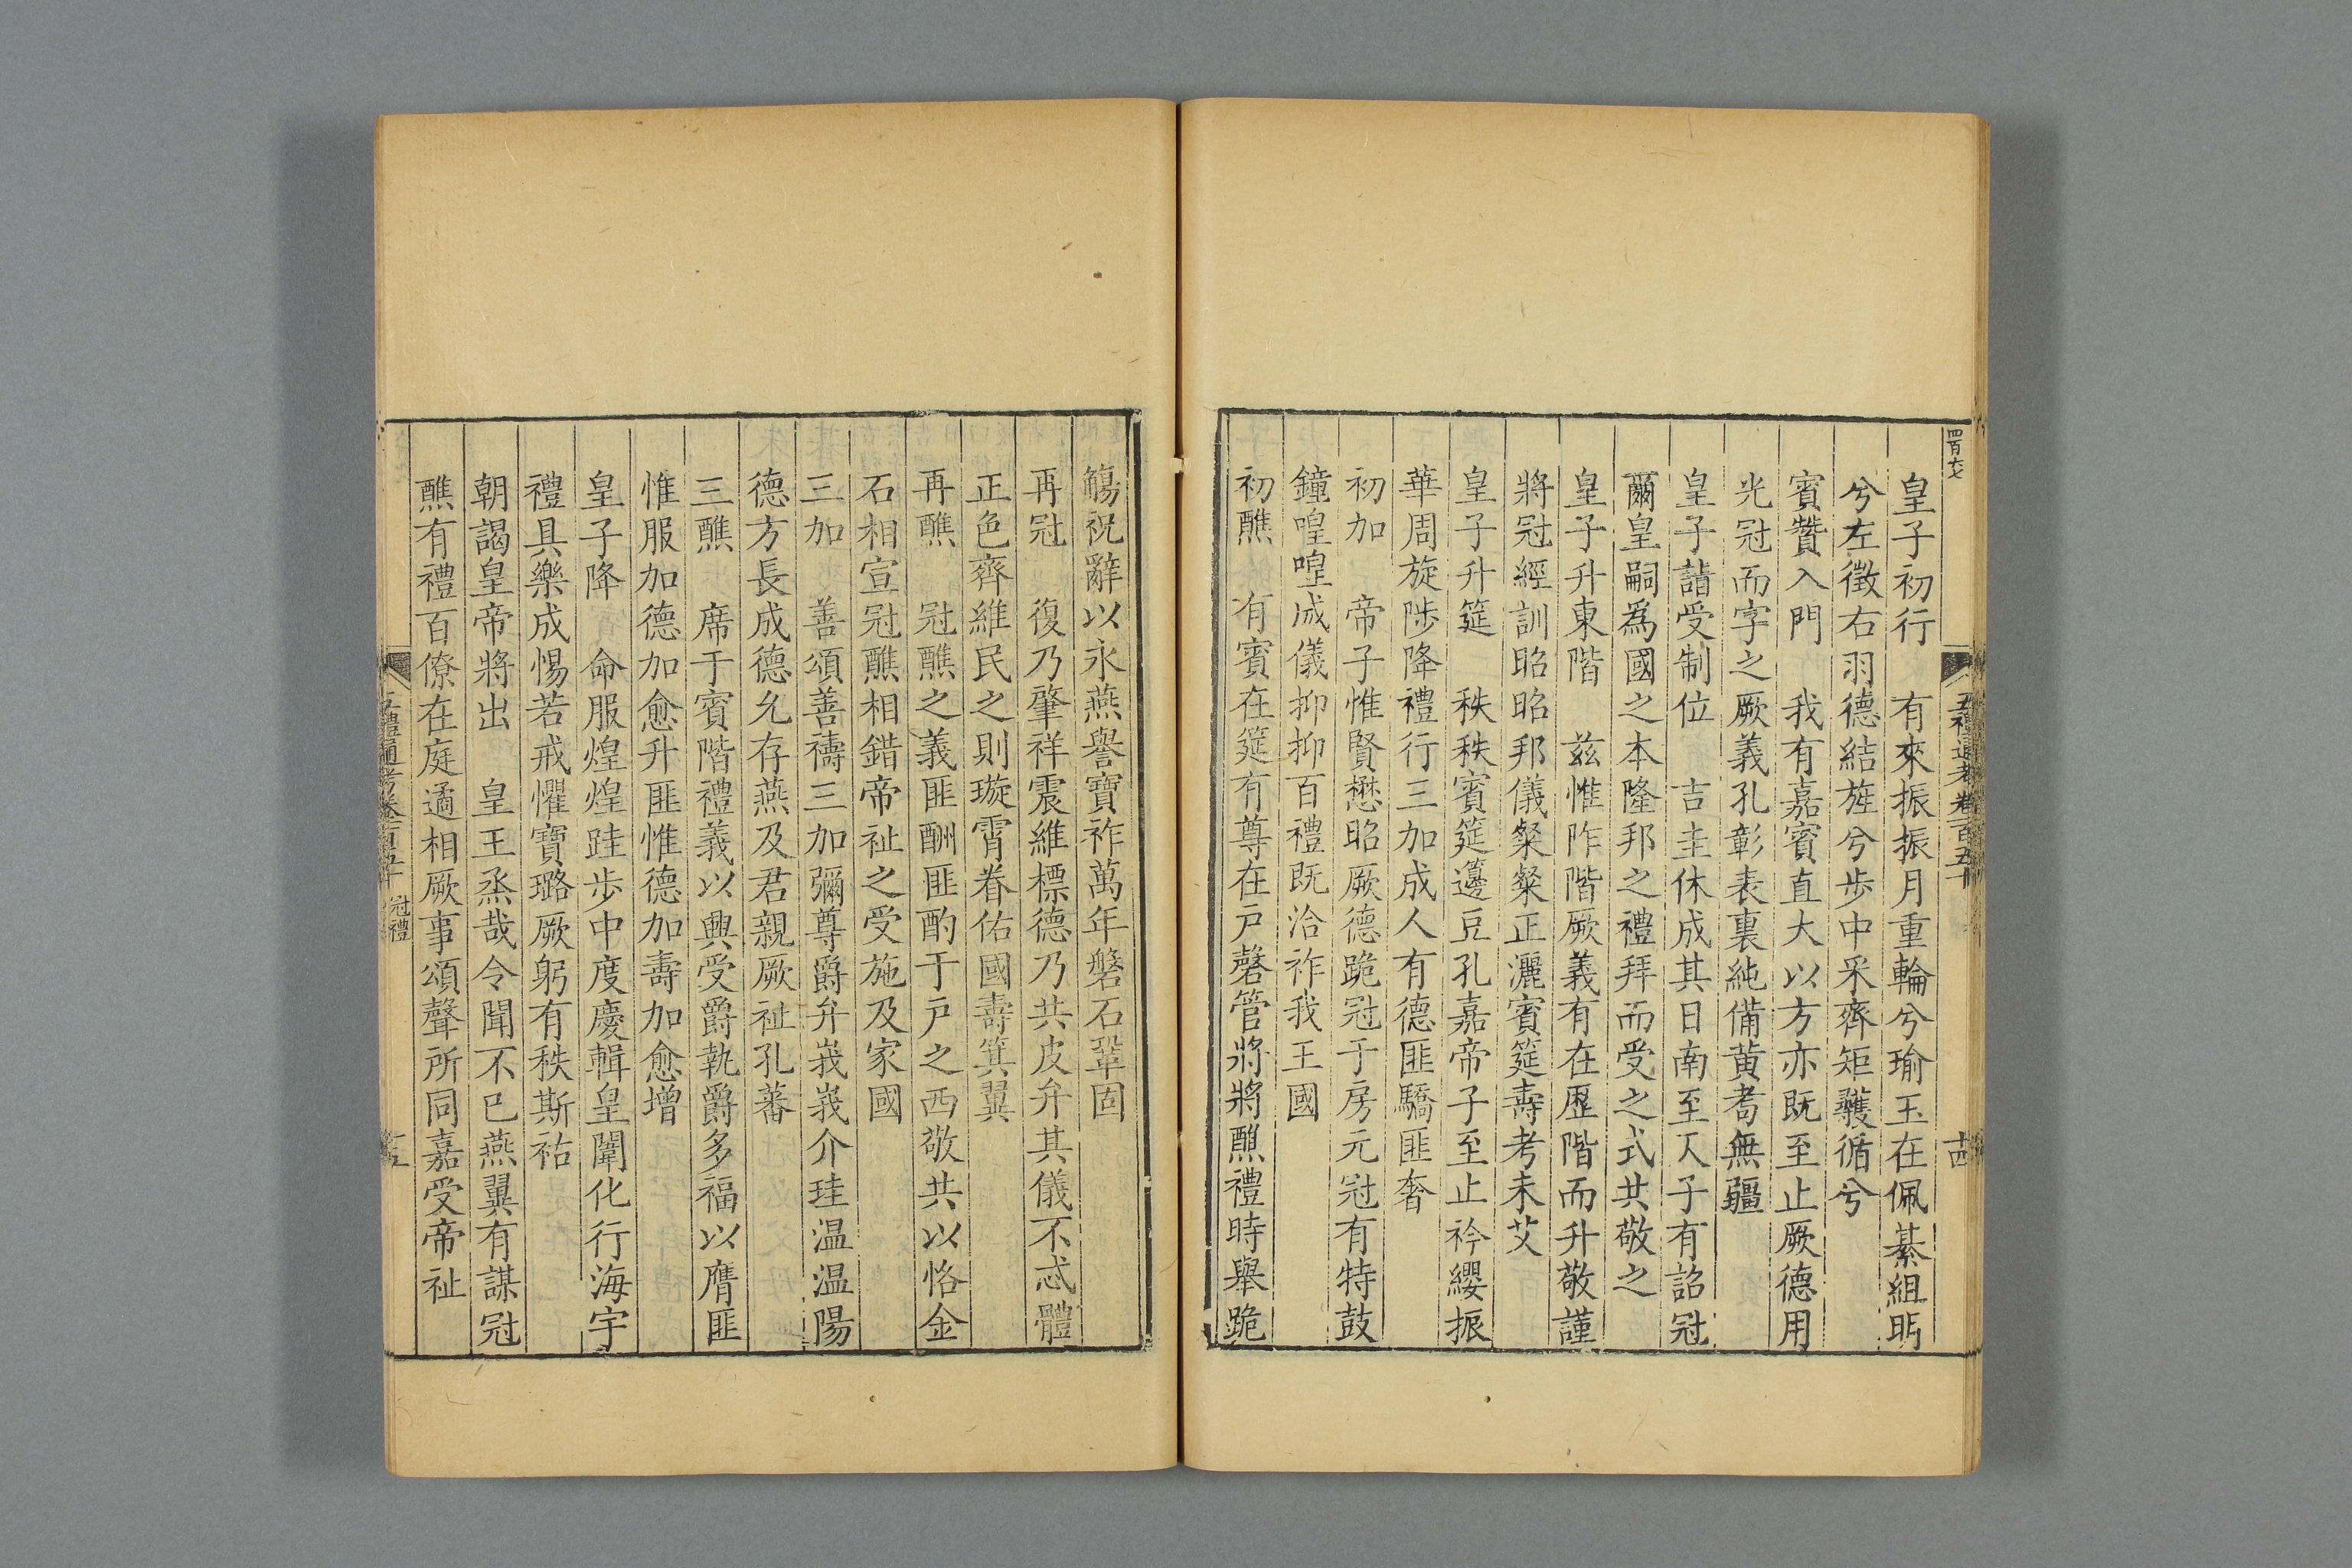 四百六
五禮通考卷百五十
十四
皇子初行　有來振振月重輪兮瑜玉在佩綦組明
兮左徵右羽德結旌兮步中采齊矩彠循兮
賓贊入門　我有嘉賓直大以方亦既至止厥德用
光冠而字之厥義孔彰表裏純備黄耉無疆
皇子詣受制位　吉圭休成其日南至天子有詔冠
爾皇嗣爲國之本隆邦之禮拜而受之式共敬之
皇子升東階　兹惟阼階厥義有在歷階而升敬謹
將冠經訓昭昭邦儀粲粲正纚賓筵壽考未艾
皇子升筵　秩秩賓筵籩豆孔嘉帝子至止衿纓振
華周旋陟降禮行三加成人有德匪驕匪奢
初加　帝子惟賢懋昭厥德跪冠于房元冠有特鼓
鐘喤喤威儀抑抑百禮既洽祚我王國
初醮　有賓在筵有尊在戶磬管將將醮禮時舉跪
觴祝辭以永燕譽寶祚萬年磐石鞏固
再冠　復乃肇祥震維標德乃共皮弁其儀不忒體
正色齊維民之則璇霄眷佑國壽箕翼
再醮　冠醮之義匪酬匪酌于戶之西敬共以恪金
石相宣冠醮相錯帝祉之受施及家國
三加　善頌善禱三加彌尊爵弁峩峩介珪温温陽
德方長成德允存燕及君親厥祉孔蕃
三醮　席于賓階禮義以興受爵執爵多福以膺匪
惟服加德加愈升匪惟德加壽加愈增
皇子降　命服煌煌跬步中度慶輯皇闈化行海宇
禮具樂成惕若戒懼寶璐厥躬有秩斯祜
朝謁皇帝將出　皇王烝哉令聞不已燕翼有謀冠
醮有禮百僚在庭遹相厥事頌聲所同嘉受帝祉
五禮通考卷一百五十　冠禮
十五